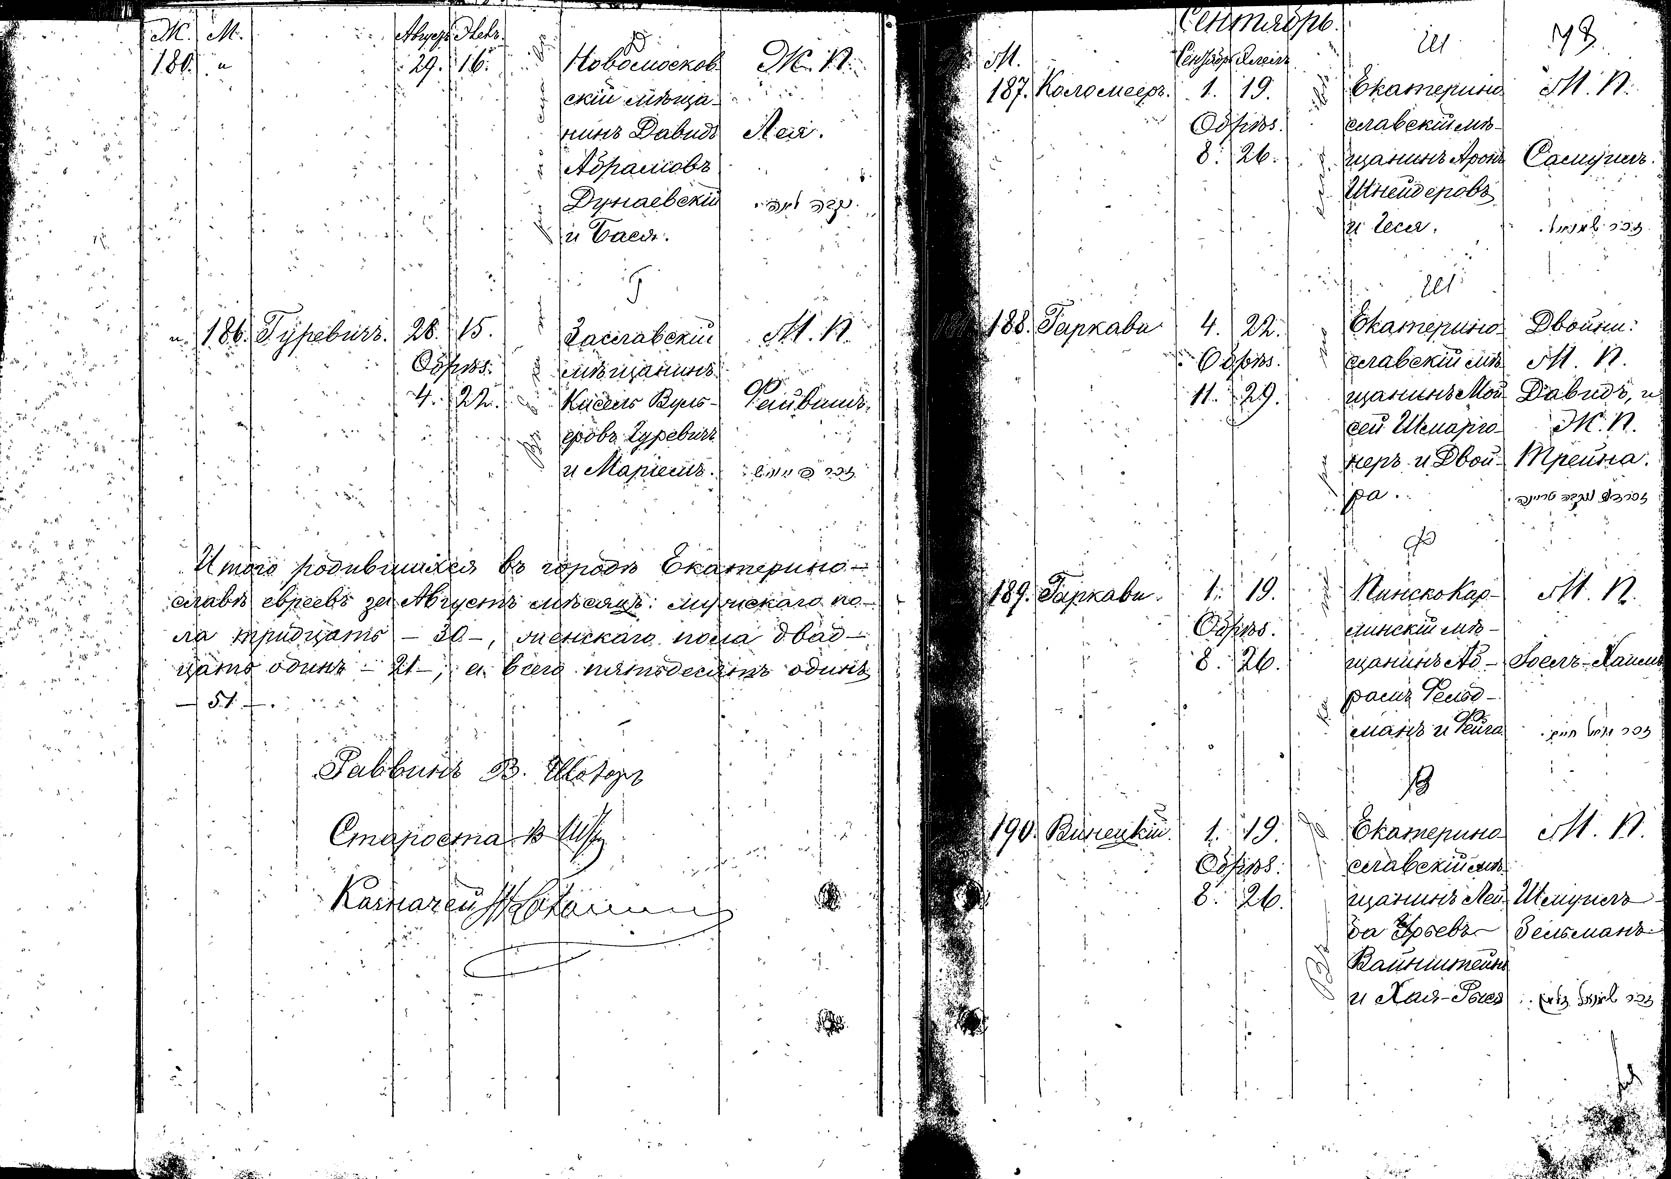 Ж. М. Августъ Элевъ.
180. " 29. 16.
Д
Новомосков
скій мѣща-
нинъ Давидъ
Абрамовъ
Дунаевскій
и Бася.
Ж. П.
Лея.
נקבה לאה.
" 186. Гуревичъ. 28. 15.
Обрѣз.
4. 22.
Г
Заславскій
мѣщанинъ
Кисель Вуль-
фовъ Гуревичъ
и Маріемъ.
М. П.
Файвишъ.
זכר פייוויש
Итого родившихся въ городѣ Екатерино-
славѣ евреевъ за Августъ мѣсяцъ: мужскаго по-
ла тридцать – 30 –, женскаго пола двад-
цать одинъ – 21 –, а всего пятьдесятъ одинъ
– 51 –.
Раввинъ В. Шаторъ
Староста
Казначей
Сентябрь.
78
М. Сентябр
187. Коломееръ. 1. 19.
Обрѣз.
8. 26.
Ш
Екатерино
славскій мѣ-
щанинъ Аронъ
Шнейдеровъ
и Геся.
М. П.
Самуилъ.
זכר שמואל.
188. Гаркави 4. 22.
Обрѣз.
11. 29.
Ш
Екатерино
славскій мѣ
щанинъ Мой
сей Шмарго-
неръ и Двой-
ра.
Двойни:
М. П.
Давидъ, и
Ж. П.
Трейна.
זכר דוד נקבה טריינה.
189. Гаркави. 1. 19.
Обрѣз.
8. 26.
Ф
Пинско Кар-
линскій мѣ-
щанинъ Аб-
рамъ Фельд-
манъ и Фейга
М. П.
Іоелъ-Хаимъ
זכר יואל חיים.
190. Винецкій 1. 19.
Обрѣз.
8. 26.
В
Екатерино
славскій мѣ
щанинъ Лей
ба Юрьевъ
Вайнштейнъ
и Хая-Рыся
М. П.
Шмуилъ
Зельманъ
זכר שמואל זלמן.